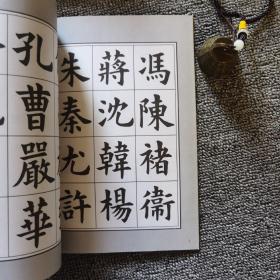 馮陳褚衞
蔣沈韓楊
朱秦尤許
孔曹嚴華